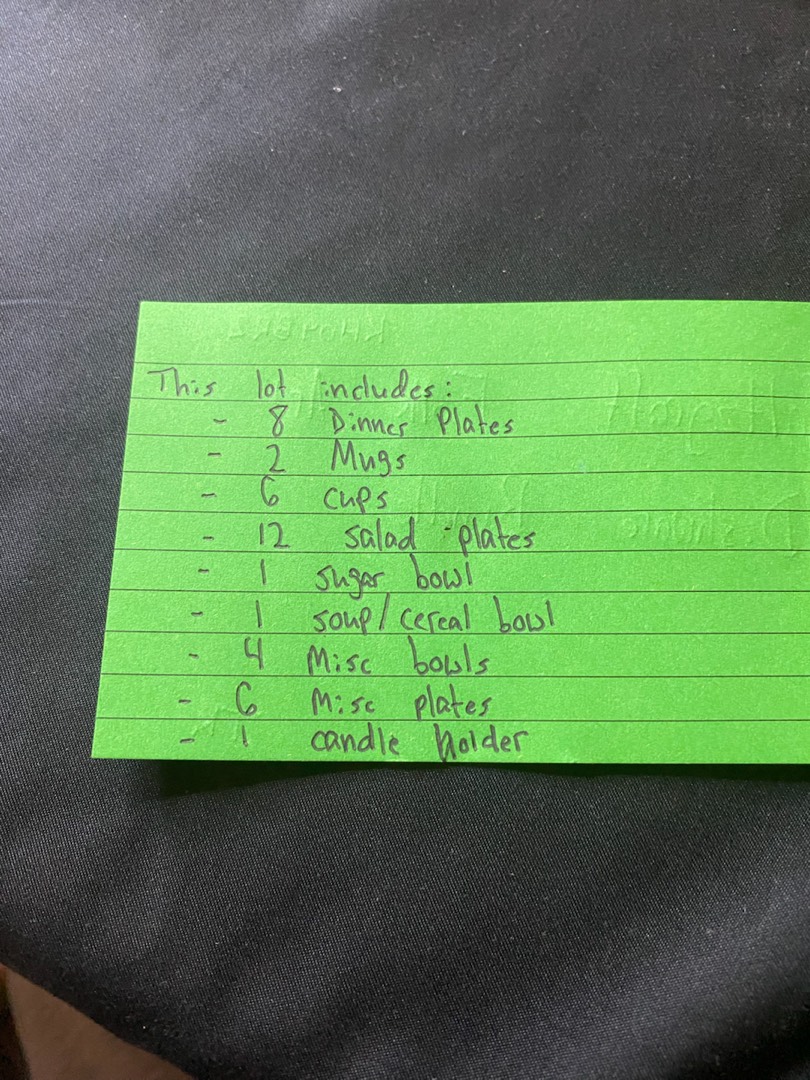 This lot includes:
- 8 Dinner Plates
- 2 Mugs
- 6 cups
- 12 salad plates
- 1 sugar bowl
- 1 soup/cereal bowl
- 4 Misc bowls
- 6 Misc plates
- 1 candle holder